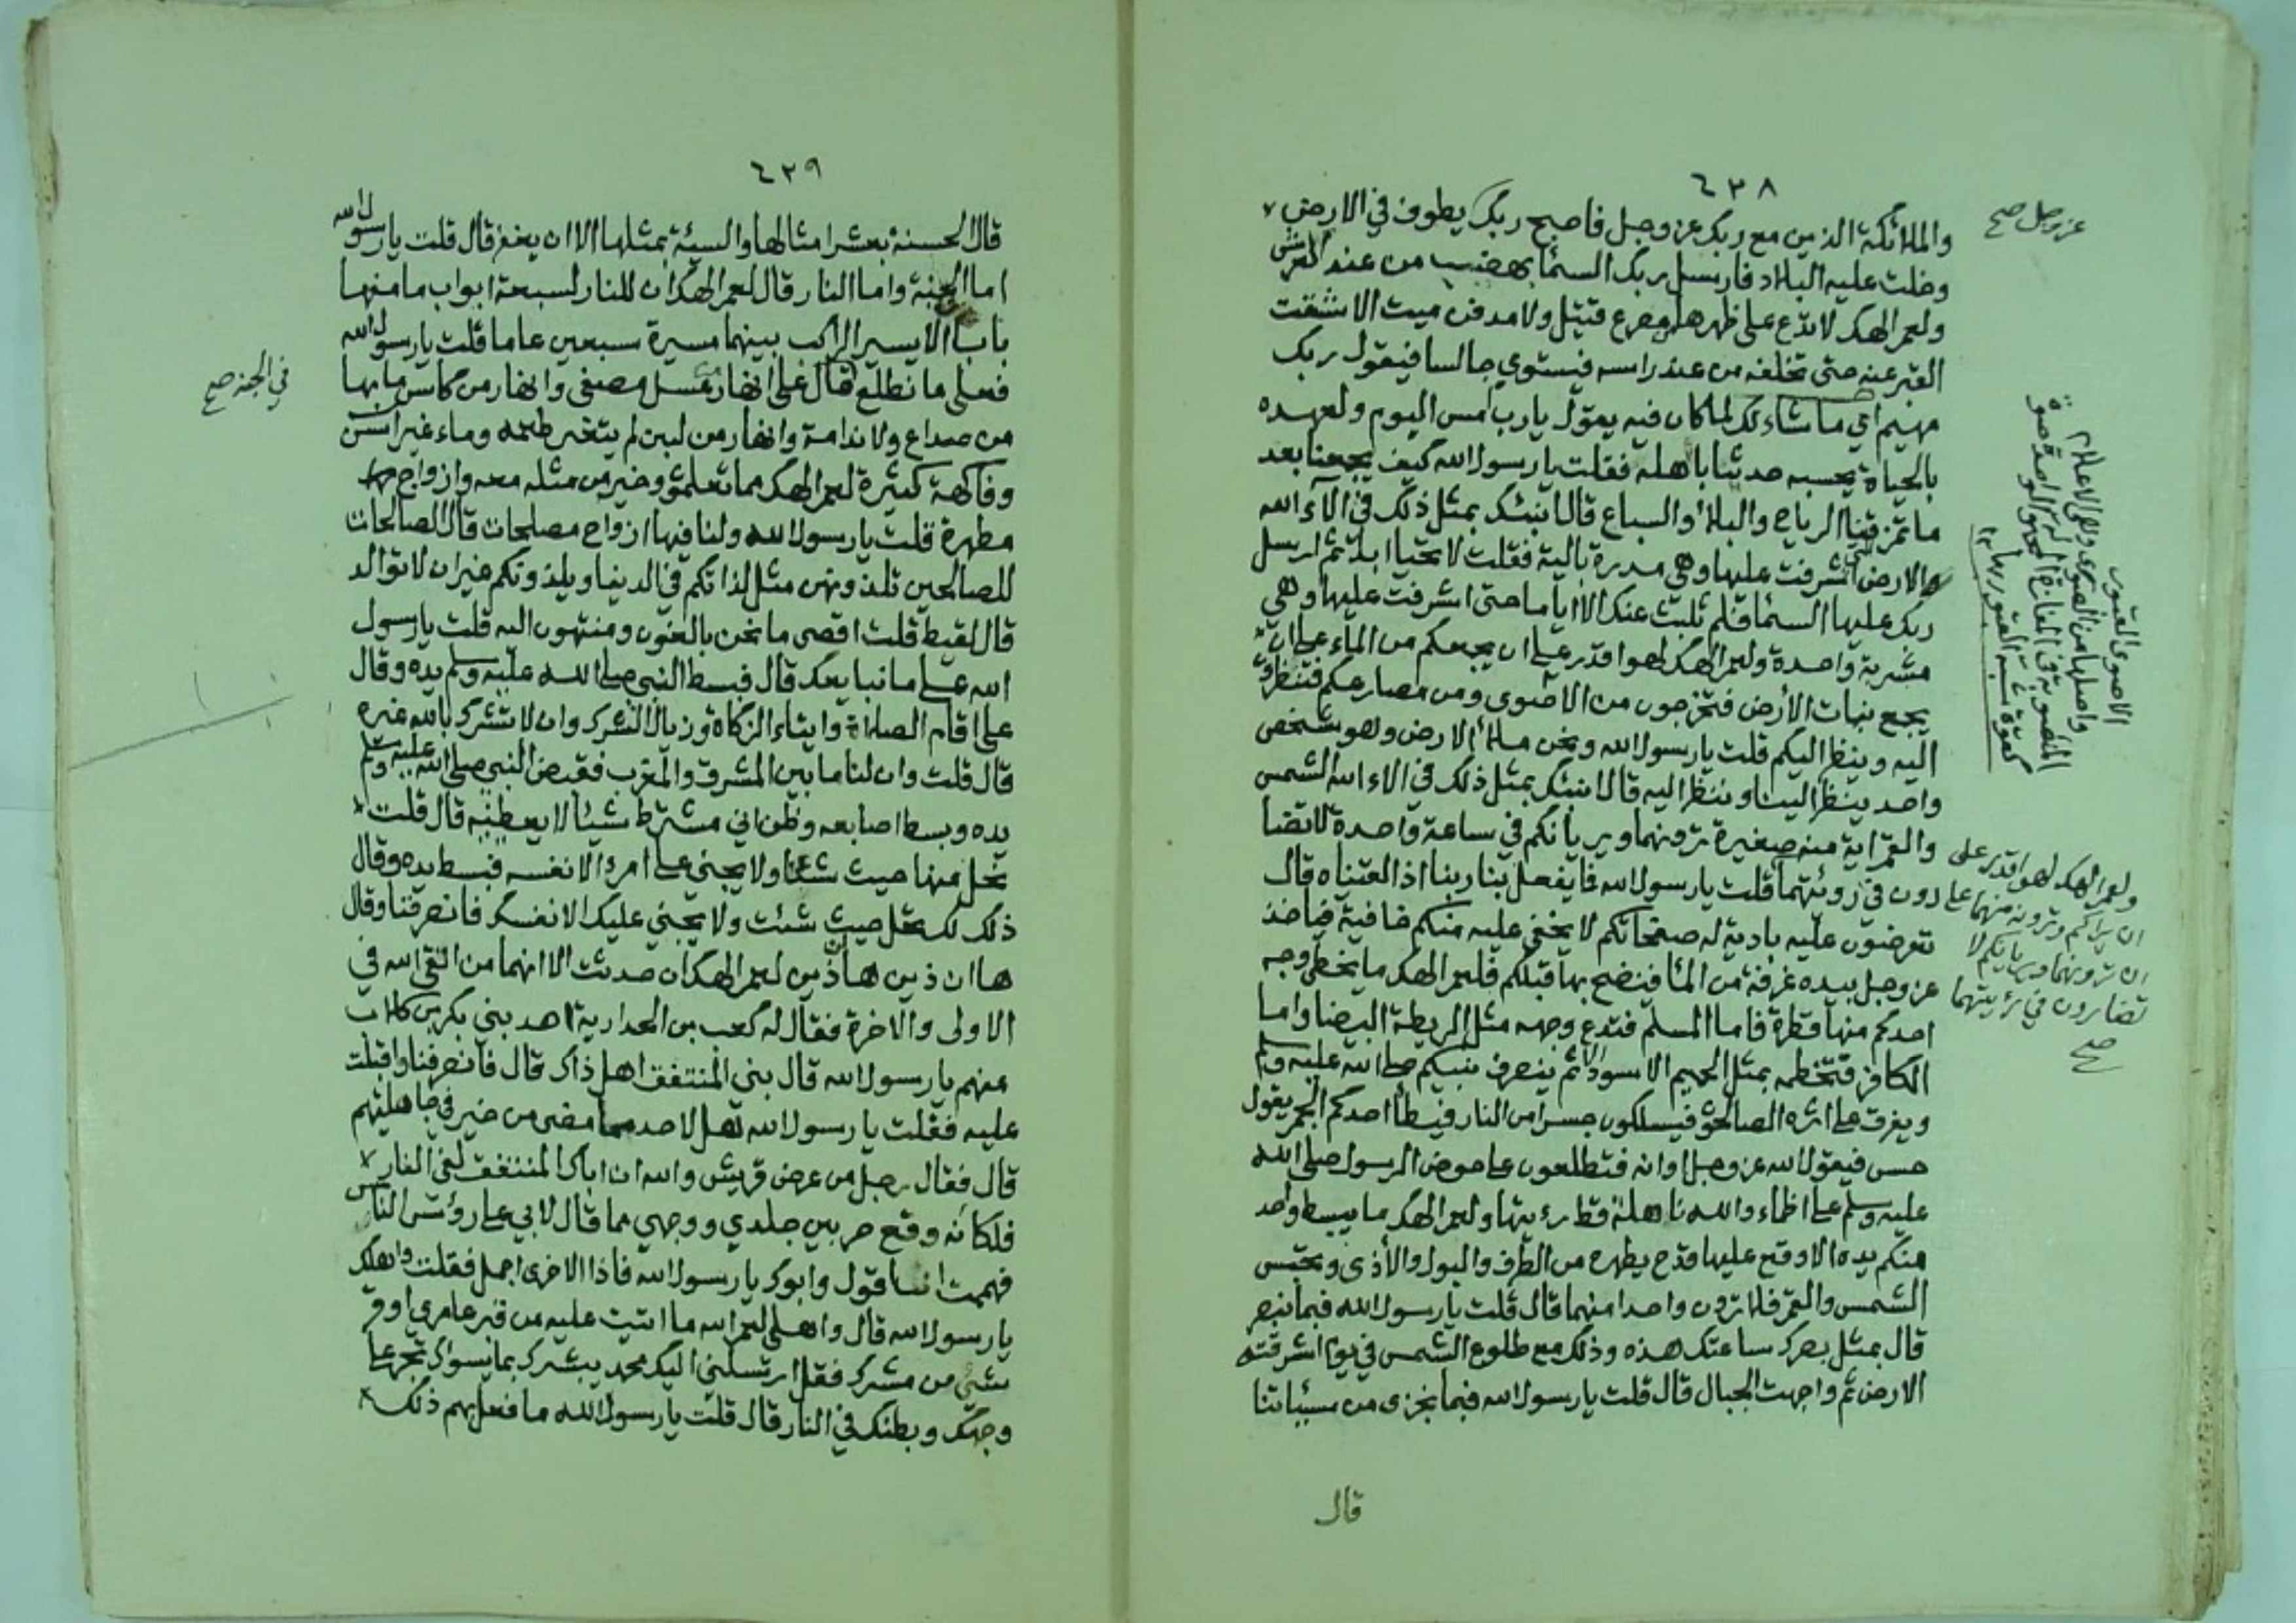 ٤٣٨
والملائكة الذين مع ربك عز وجل فاصبح ربك يطوف في الارض
وخلت عليه البلاد فارسل ربك السمآ بهضب من عند العرش
ولعمر الهك لا تدع على ظهرها مصرع قتيل ولا مدفن ميت الا شقت
القبر عنه حتى تخلفه من عند راسه فيستوي جالسا فيقول ربك
مهيم اي ما شاء لك لما كان فيه يقول يارب امس اليوم ولعهده
بالحياة يحسبه حديثا باهله فقلت يا رسول الله كيف يجمعنا بعد
ما تمزقنا الرياح والبلا والسباع قال انبئك بمثل ذلك في الآء الله
الارض اشرفت عليها وهي مدرة بالية فقلت لا تحيا ابدا ثم ارسل
ربك عليها السمآ فلم تلبث عنك الا اياما حتى اشرفت عليها وهي
مشربة واحدة ولعمر الهك لهو اقدر على ان يجمعكم من الماء على ان
يجمع نبات الأرض فتخرجون من الاضوى ومن مصارعكم فتنظرون
اليه وينظر اليكم قلت يا رسول الله ونحن ملأ الارض وهو شخص
واحد ينظر الينا وننظر اليه قال انبئك بمثل ذلك في الاء الله الشمس
والقمر اية منه صغيرة ترونهما ويريانكم في ساعة واحدة لا تضا
رون في رؤيتهما قلت يا رسول الله فما يفعل بنا ربنا اذا لقيناه قال
تعرضون عليه بادية له صفحاتكم لا يخفى عليه منكم خافية فياخذ
عز وجل بيده غرفة من المآ فينضح بها قبلكم فلعمر الهك ما يخطي وجه
احدكم منها قطرة فاما المسلم فتدع وجهه مثل الريطة البيضا واما
الكافر فتخطمه بمثل الحميم الاسود الا ثم ينصرف نبيكم صلى الله عليه وسلم
ويفرق على اثره الصالحون فيسلكون جسرا من النار فيطأ احدكم الجمر يقول
حس فيقول الله عز وجل اوانه فتطلعون على حوض الرسول صلى الله
عليه وسلم على اظماء والله ناهلة قط رءيتها ولعمر الهك ما يبسط واحد
منكم يده الا وقع عليها قدح يطهره من الطرف والبول والأذى وتحتبس
الشمس والقمر فلا ترون واحدا منهما قال قلت يا رسول الله فبما نبصر
قال بمثل بصرك ساعتك هذه وذلك مع طلوع الشمس في يوم اشرقته
الارض ثم واجهت الجبال قال قلت يا رسول الله فبما نجزى من سيئاتنا
قال
عز وجل صح
الاصوى القبور
واصلها من الصوى وهي الاعلام
ولعمر الهك لهو اقدر على
ان يراكم وترونه منهما على
ان ترونهما ويريانكم لا
تضارون في رؤيتهما
صح
٤٣٩
قال الحسنة بعشر امثالها والسيئة بمثلها الا ان يغفر قال قلت يا رسول الله
اما الجنة واما النار قال لعمر الهك ان للنار لسبعة ابواب ما منها
بابا الا يسير الراكب بينهما مسيرة سبعين عاما قلت يا رسول الله
فعلى ما نطلع قال على انهار عسل مصفى وانهار من كاس ما بها
من صداع ولا ندامة وانهار من لبن لم يتغير طعمه وماء غير اسن
وفاكهة كثيرة لعمر الهك مما تعلمون وخير من مثله معه وازواج
مطهرة قلت يا رسول الله ولنا فيها ازواج مصلحات قال الصالحات
للصالحين تلذونهن مثل لذاتكم في الدنيا ويلذونكم غير ان لا توالد
قال لقيط قلت اقصى ما نحن بالغون ومنتهون اليه قلت يا رسول
الله على ما نبايعك قال فبسط النبي صلى الله عليه وسلم يده وقال
على اقام الصلاة وايتاء الزكاة وزيال الشرك وان لا تشرك بالله غيره
قال قلت وان لنا ما بين المشرق والمغرب فقبض النبي صلى الله عليه وسلم
يده وبسط اصابعه وظن اني مشترط شيئا لا يعطنيه قال قلت
نحل منها حيث شئنا ولا يجني على امرء الا نفسه فبسط يده وقال
ذلك لك تحل حيث شئت ولا يجني عليك الا نفسك فانصرفنا وقال
ها ان ذين ها ان ذين لعمر الهك ان حدثت الا انهما من اتقى الله في
الاولى والاخرة فقال له كعب بن الحدارية احد بني بكر بن كلاب
منهم يا رسول الله قال بني المنتفق اهل ذاك قال فانصرفنا واقبلت
عليه فقلت يا رسول الله هل لاحد مما مضى من خير في جاهليتهم
قال فقال رجل من عرض قريش والله ان اباك المنتفق لفي النار
فلكأنه وقع حر بين جلدي ووجهي مما قال لابي على رؤس الناس
فهممت ان اقول وابوك يا رسول الله فاذا الاخرى اجمل فقلت واهلك
يا رسول الله قال واهلي لعمر الله ما اتيت عليه من قبر عامري او قر
شي من مشرك فقل ارسلني اليك محمد يبشرك بما يسوءك تجر على
وجهك وبطنك في النار قال قلت يا رسول الله ما فعل بهم ذلك
في الجنة صح